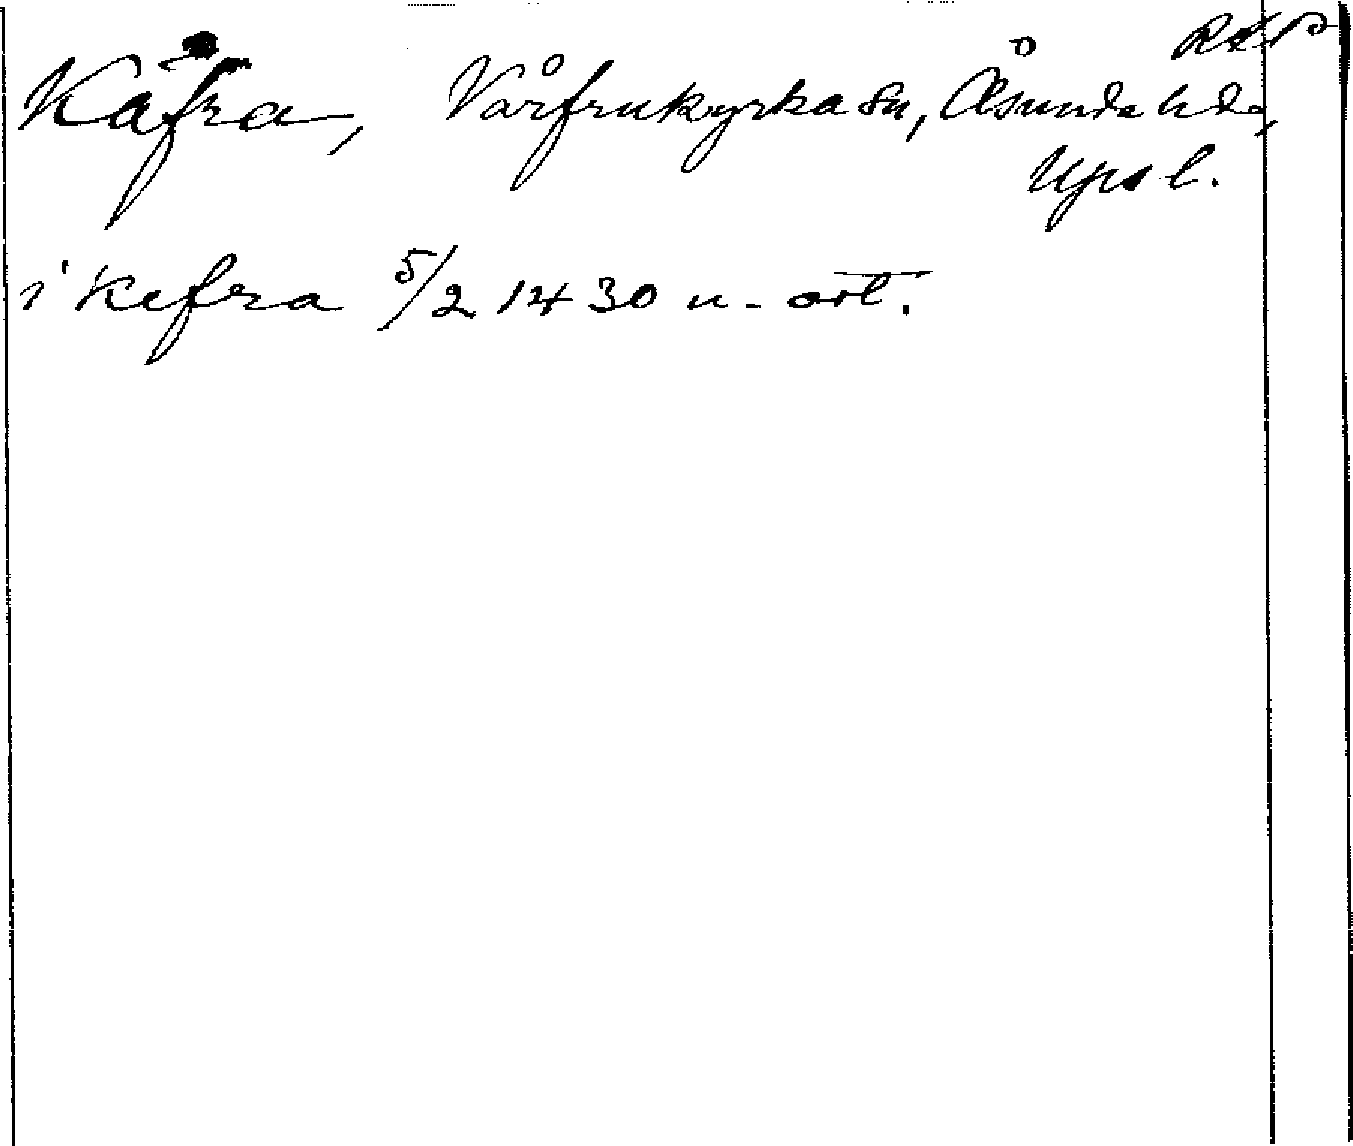 RAP
Kåfra, Vårfrukyrka sn, Åsunda hde,
Upsl.
i kefra 5/2 1430 u. ort.